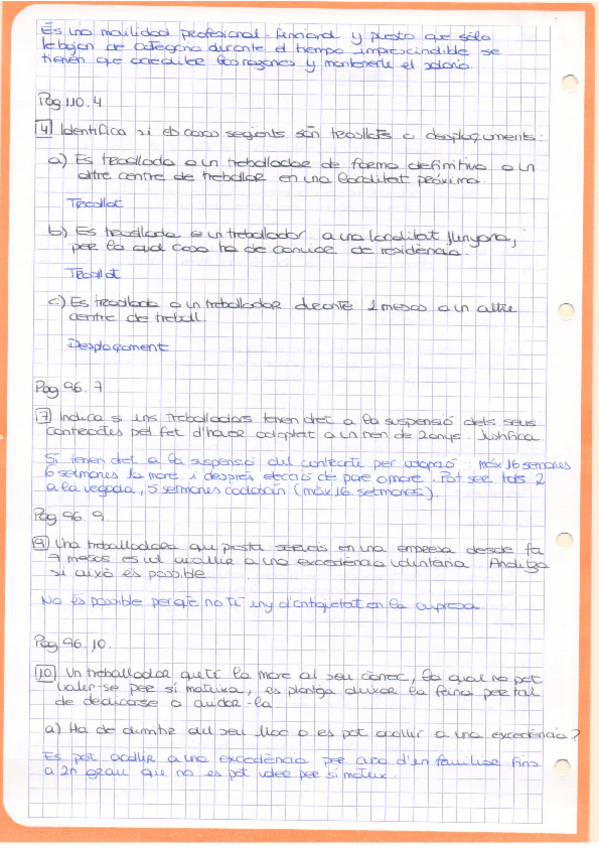 És una movilidad profesional - funcional y puesto que sólo
trabajan de categoria durante el tiempo imprescindible se
tienen que acreditar las razones y mantenerle el salario.
Pág 110. 4
4 Identifica si els casos següents són trasllats o desplaçaments:
a) Es trasllada a un treballador de forma definitiva a un
altre centre de treballar en una localitat próxima.
Trasllat
b) Es trasllada a un treballador a una localitat llunyana,
per la qual cosa ha de canviar de residència.
Trasllat
c) Es trasllada a un treballador durante 2 mesos a un altre
centre de treball
Desplaçament
Pág 96. 7
7 Indica si uns treballadors tenen dret a la suspensió dels seus
contractes pel fet d'haver adoptat a un nen de 2 anys. Justifica
Si tenen dret a la suspensió del contracte per adopció máx 16 semanes
6 setmanes la mare i després elecció de pare o mare. Pot ser tots 2
a la vegada, 5 setmanes cadascún (máx 16 setmanes).
Pág 96. 9.
9 Una treballadora que presta serveis en una empresa desde fa
7 mesos es vol acollir a una excedència voluntaria. Analitza
si això és possible
No és possible perquè no té 1 any d'antiguetat en la empresa
Pág 96. 10.
10 Un treballador que té la mare al seu càrrec, la qual no pot
valer-se per sí mateixa, es planteja deixar la feina per tal
de dedicarse a cuidar-la.
a) Ha de dimitir del seu lloc o es pot acollir a una excedència?
Es pot acollir a una excedència per cura d'un familiar fins
a 2n grau que no es pot valer per si mateix.